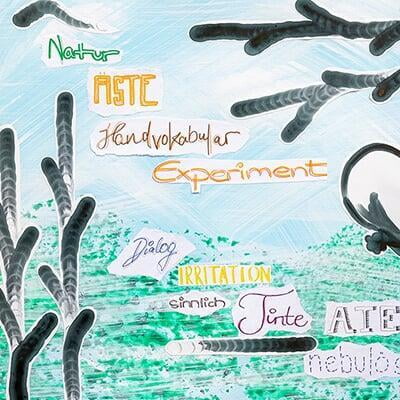 Natur
ÄSTE
Handvokabular
Experiment
Dialog
IRRITATION
sinnlich
Tinte
ATE
nebulös